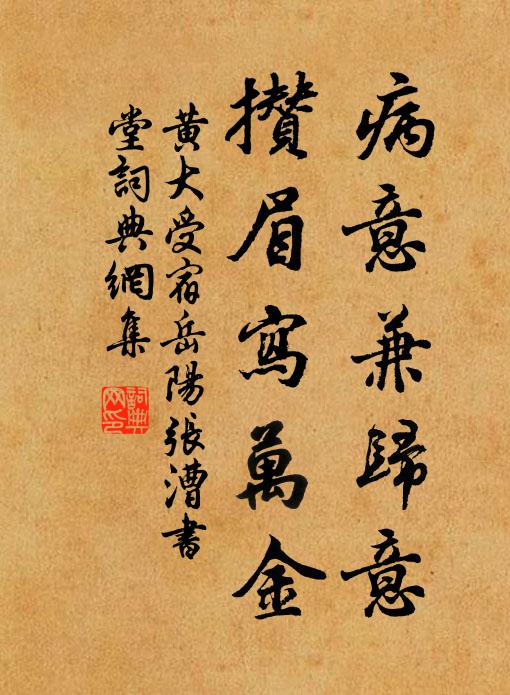 病意兼歸意
攅眉寫萬金
黃大受宿岳陽張漕書
堂詞典網集
詞典
网印